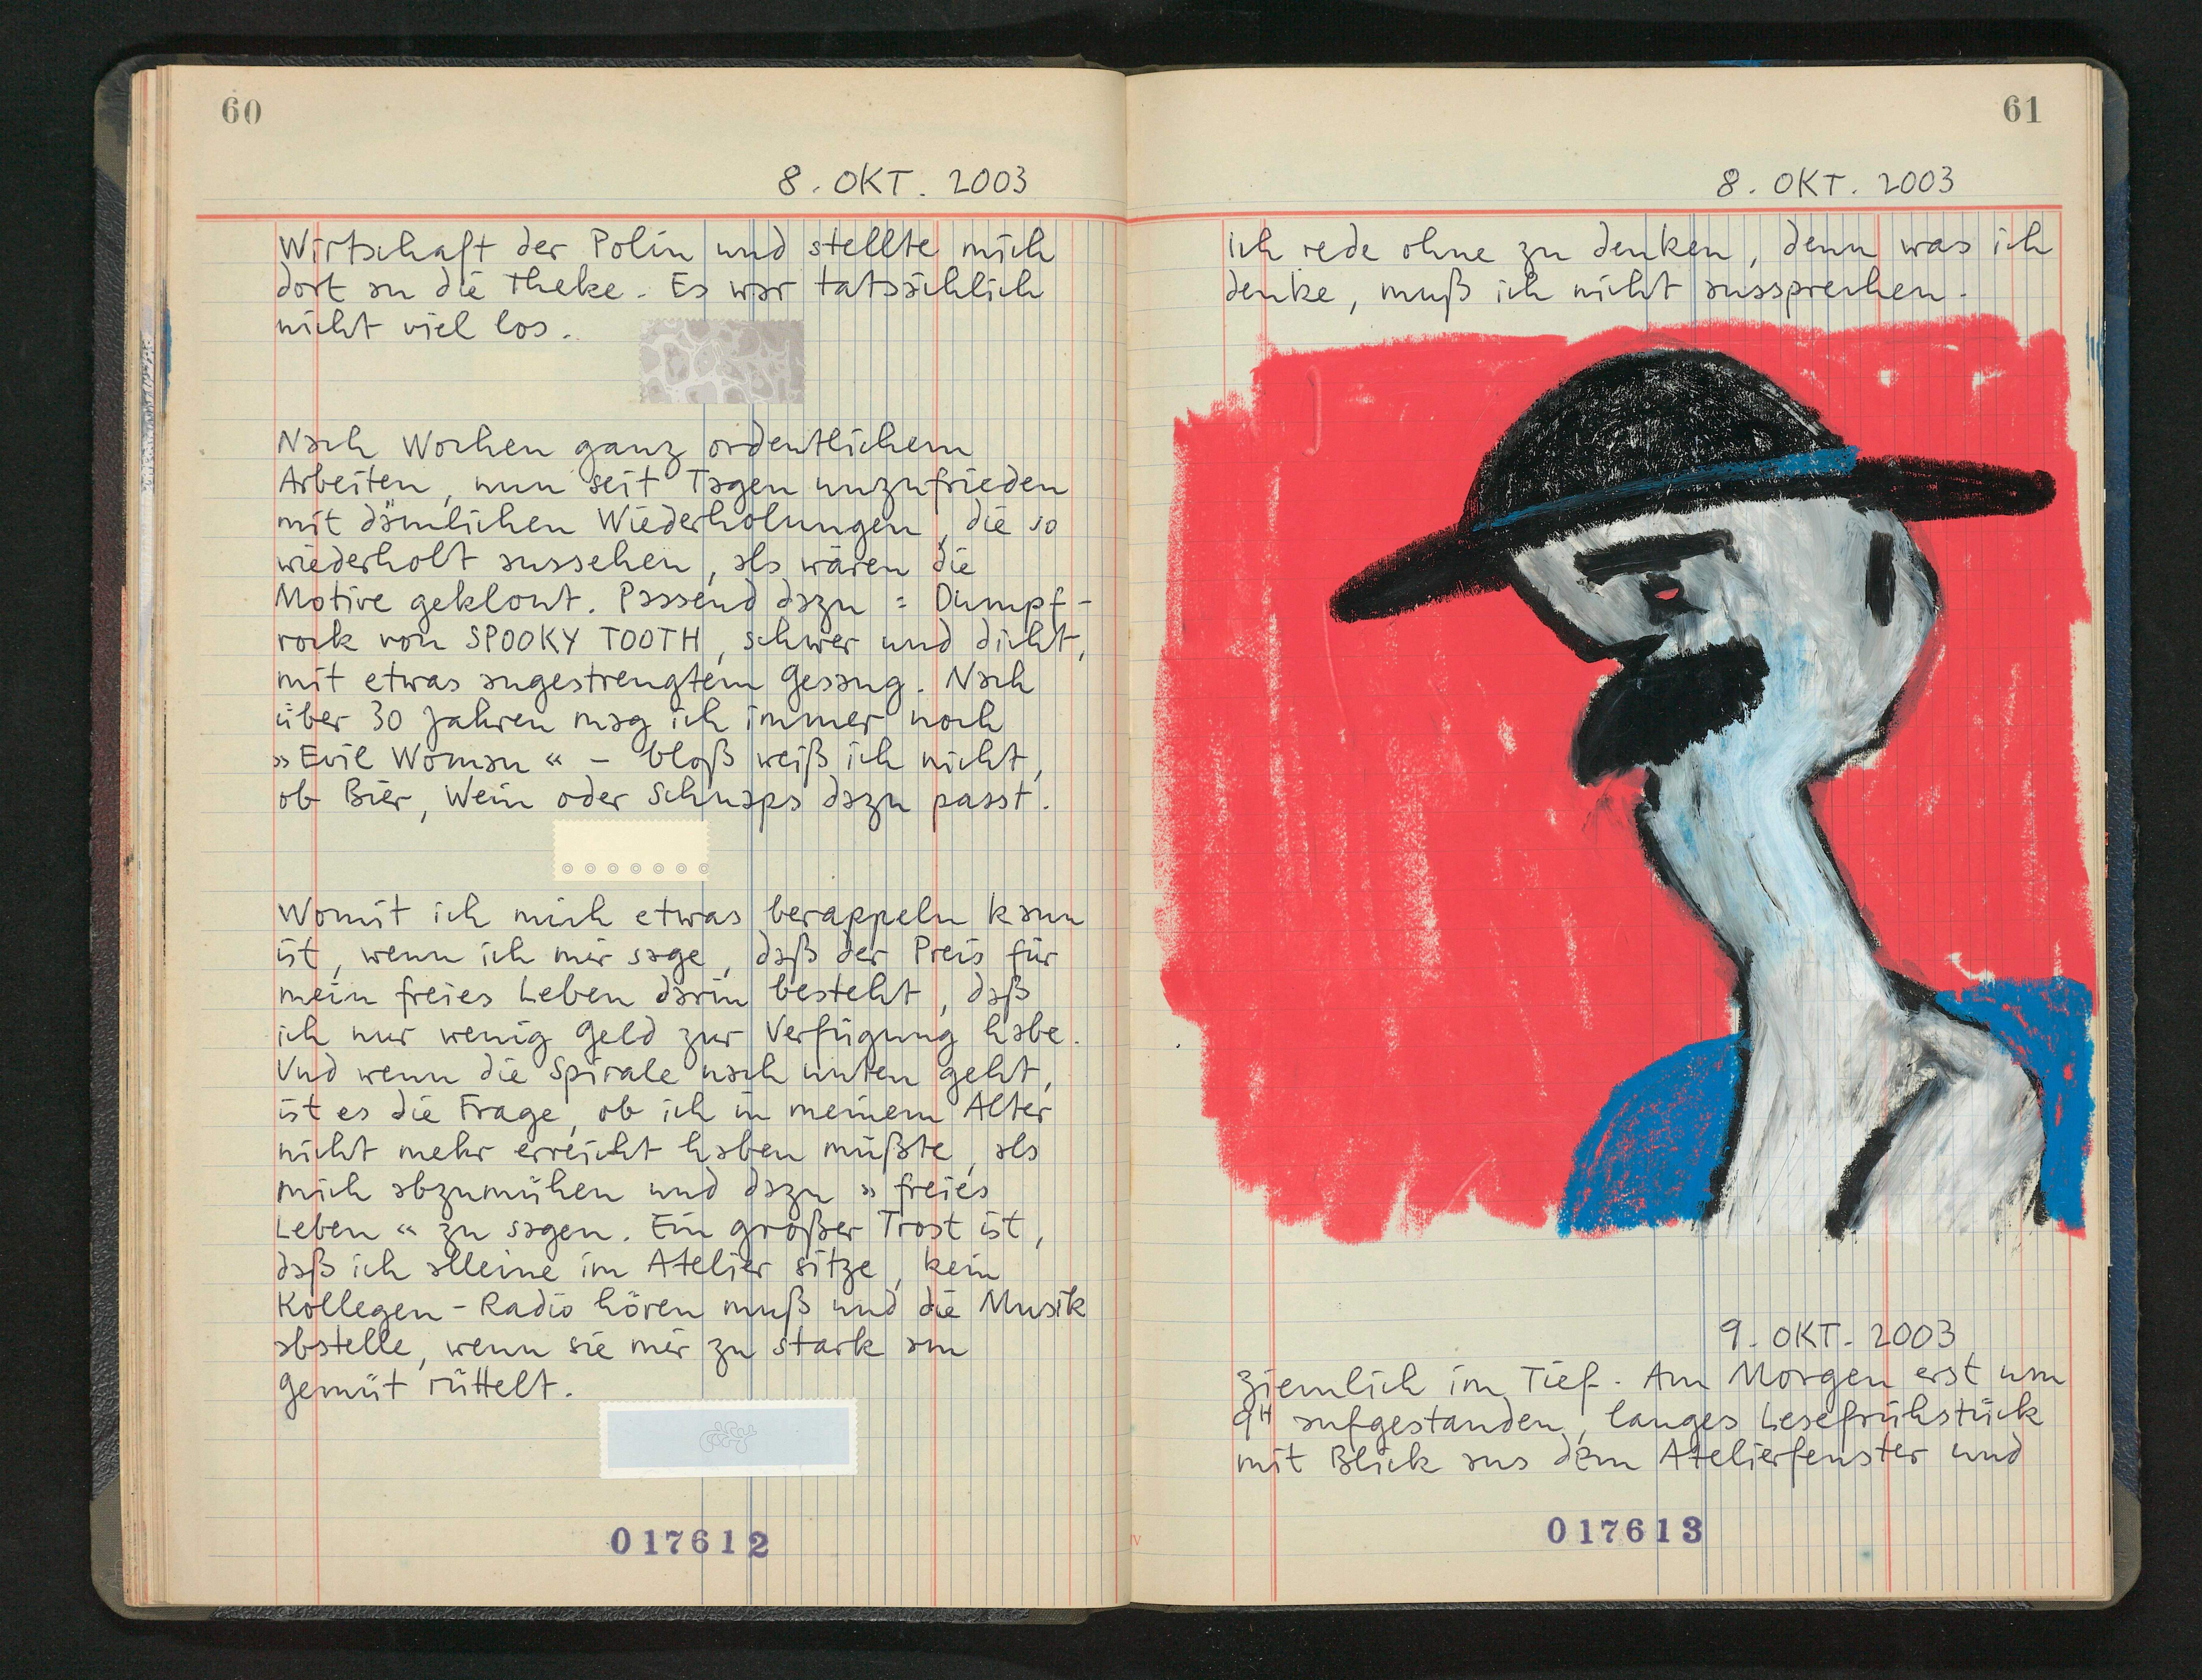 60
8. OKT. 2003
Wirtschaft der Polin und stellte mich
dort an die Theke. Es war tatsächlich
nicht viel los.
Nach Wochen ganz ordentlichem
Arbeiten, nun seit Tagen unzufrieden
mit dämlichen Wiederholungen, die so
wiederholt aussehen, als wären die
Motive geklont. Passend dazu: Dumpf-
rock von SPOOKY TOOTH, schwer und dicht,
mit etwas angestrengtem Gesang. Nach
über 30 Jahren mag ich immer noch
»Evil Woman« – bloß weiß ich nicht,
ob Bier, Wein oder Schnaps dazu passt.
Womit ich mich etwas berappeln kann
ist, wenn ich mir sage, daß der Preis für
mein freies Leben darin besteht, daß
ich nur wenig Geld zur Verfügung habe.
Und wenn die Spirale nach unten geht,
ist es die Frage, ob ich in meinem Alter
nicht mehr erreicht haben müßte, als
mich abzumühen und dazu »freies
Leben« zu sagen. Ein großer Trost ist,
daß ich alleine im Atelier sitze, kein
Kollegen-Radio hören muß und die Musik
abstelle, wenn sie mir zu stark am
Gemüt rüttelt.
017612
61
8. OKT. 2003
Ich rede ohne zu denken, denn was ich
denke, muß ich nicht aussprechen.
9. OKT. 2003
Ziemlich im Tief. Am Morgen erst um
9H aufgestanden, langes Lesefrühstück
mit Blick aus dem Atelierfenster und
017613